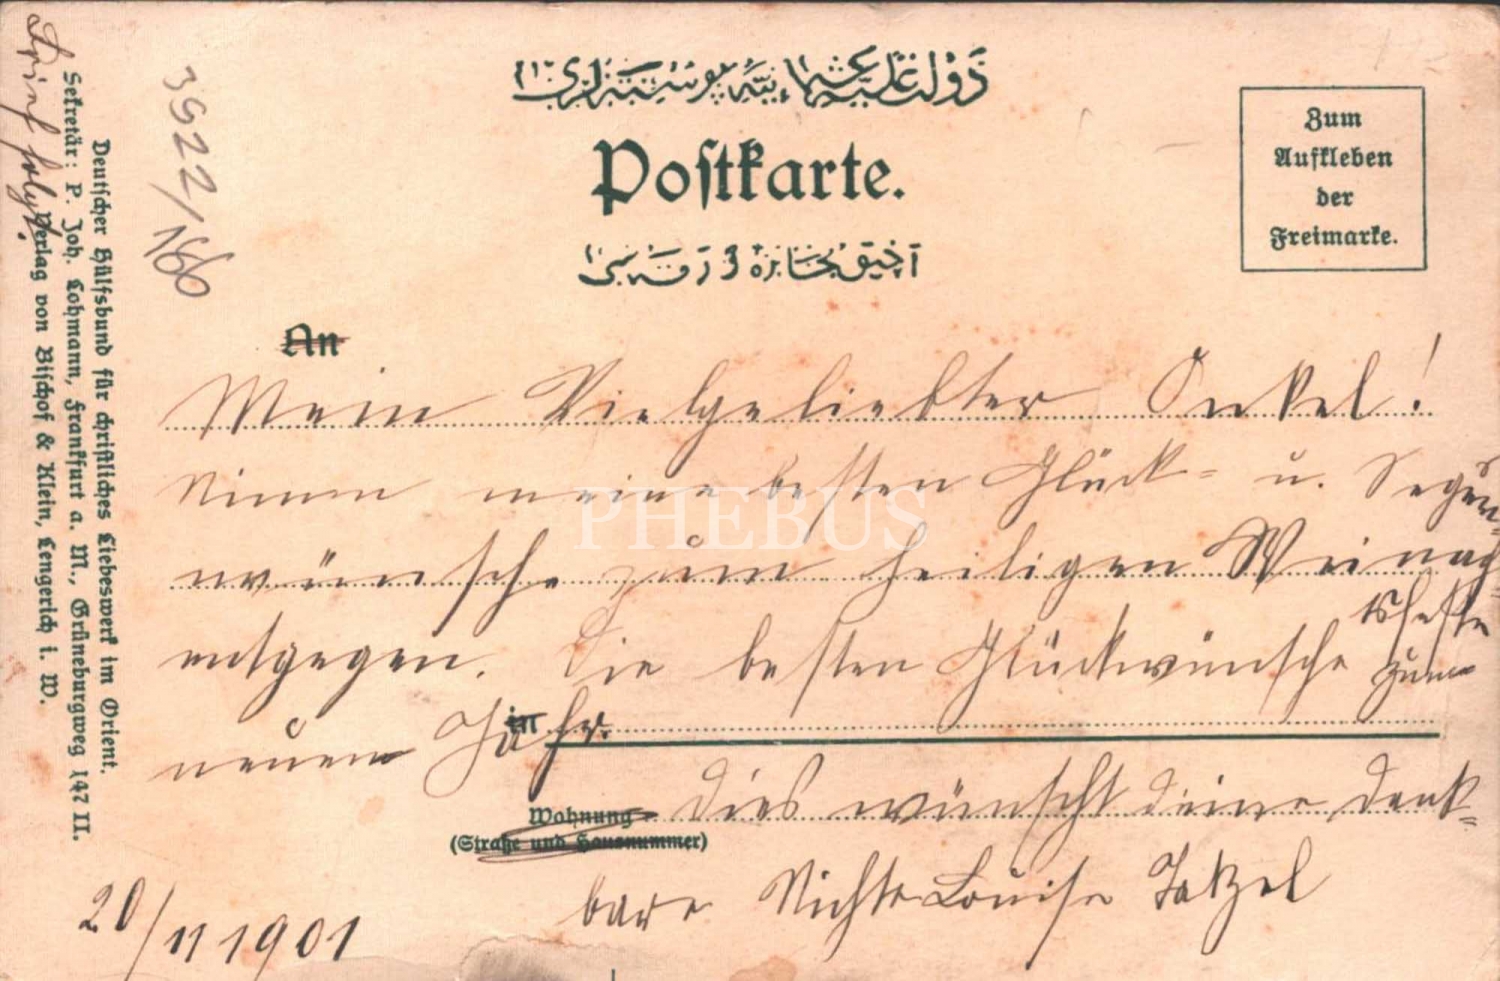 دولت علیه عثمانیه پوسته‌لری
Postkarte.
Zum
Aufkleben
der
Freimarke.
An
Mein Vielgeliebter Onkel!
Nimm meine besten Glück= u. Segen=
wünsche zum heiligen Weinach
tsfeste
entgegen. Die besten Glückwünsche zum
neuen Jahr.
in
Wohnung
(Straße und Hausnummer)
Dies wünscht deine dank=
bare Nichte Louise Tatzel
20/11 1901
Brief folgt.
3922/166
Deutscher Hülfsbund für christliches Liebeswerk im Orient.
Sekretär: P. Joh. Lohmann, Frankfurt a. M., Grüneburgweg 147 II.
Verlag von Bischof & Klein, Lengerich i. W.
PHEBUS